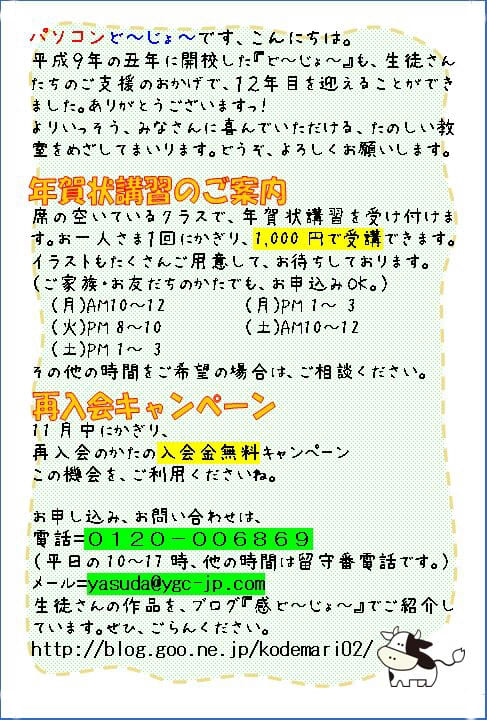 パソコンど～じょ～です、こんにちは。
平成9年の丑年に開校した『ど～じょ～』も、生徒さん
たちのご支援のおかげで、12年目を迎えることができ
ました。ありがとうございますっ!
よりいっそう、みなさんに喜んでいただける、たのしい教
室をめざしてまいります。どうぞ、よろしくお願いします。
年賀状講習のご案内
席の空いているクラスで、年賀状講習を受け付けま
す。お一人さま1回にかぎり、1,000 円で受講できます。
イラストもたくさんご用意して、お待ちしております。
(ご家族・お友だちのかたでも、お申込みOK。)
(月)AM10～12 (月)PM 1～ 3
(火)PM 8～10 (土)AM10～12
(土)PM 1～ 3
その他の時間をご希望の場合は、ご相談ください。
再入会キャンペーン
11 月中にかぎり、
再入会のかたの入会金無料キャンペーン
この機会を、ご利用くださいね。
お申し込み、お問い合わせは、
電話=０１２０－００６８６９
(平日の10～17 時、他の時間は留守番電話です。)
メール=yasuda@ygc-jp.com
生徒さんの作品を、ブログ『感ど～じょ～』でご紹介し
ています。ぜひ、ごらんください。
http://blog.goo.ne.jp/kodemari02/